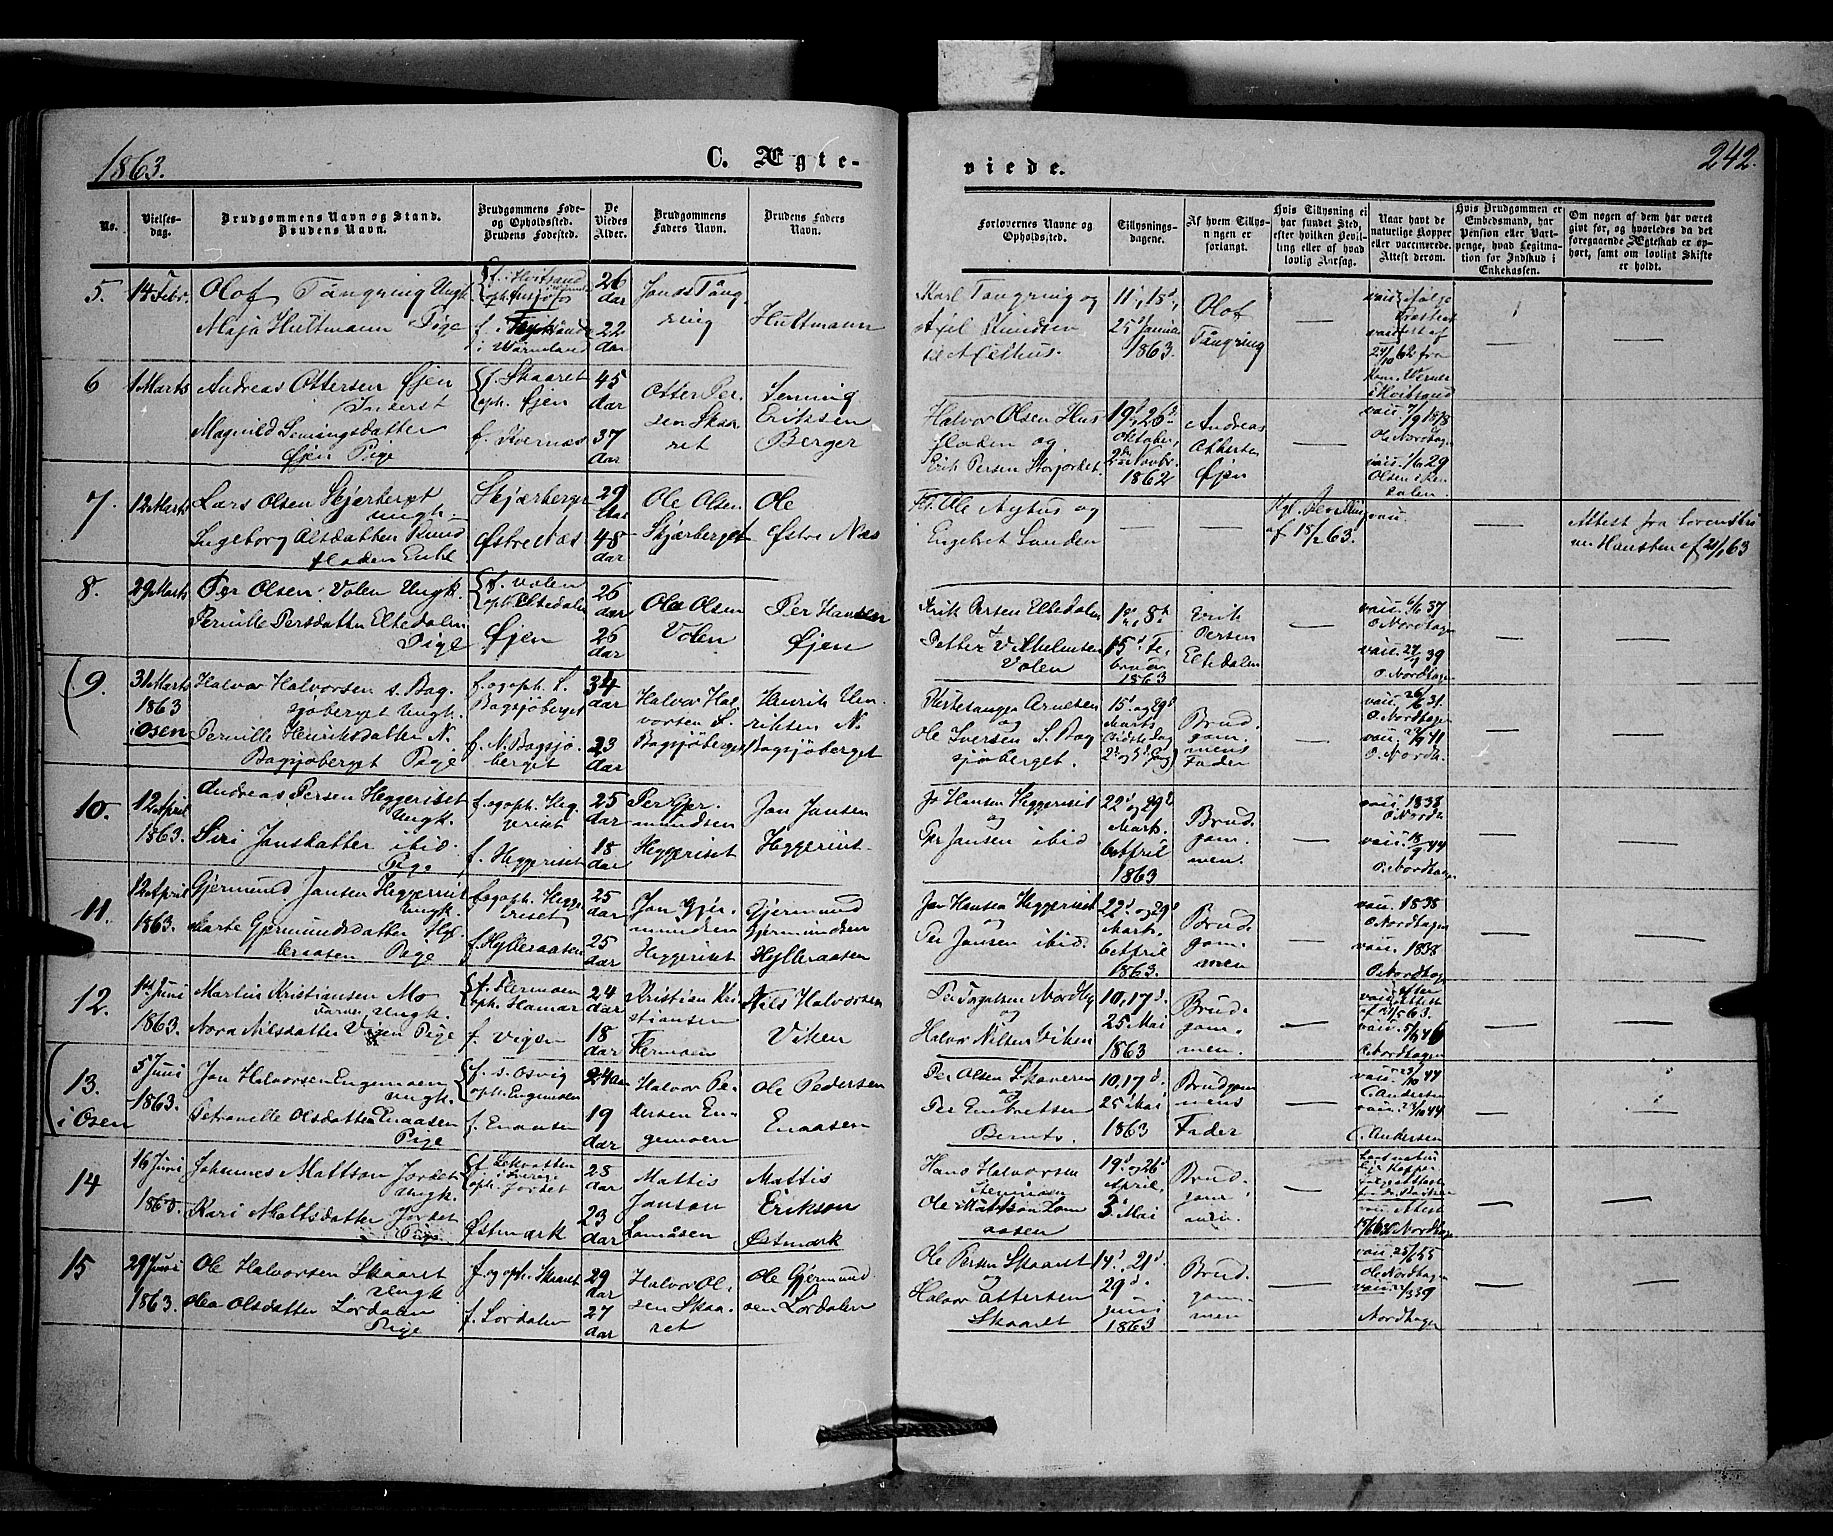 1863.
C. Ægte-
viede.
242.
No.
Vielses-
dag.
Brudgommens Navn og Stand.
Brudens Navn.
Brudgommens Føde-
og Opholdssted.
Brudens Fødested.
De
Viedes
Alder.
Brudgommens
Faders Navn.
Brudens Faders
Navn.
Forlovernes Navne og
Opholdssted.
Tillysnings-
dagene.
Af hvem Tillys-
ningen er
forlangt.
Hvis Tillysning ei
har fundet Sted,
efter hvilken Bevil-
ling eller af hvad
lovlig Aarsag.
Naar havt de
naturlige Kopper
eller vaccinerede.
Attest derom.
Hvis Brudgommen er
Embedsmand, har
Pension eller Vart-
penge, hvad Legitima-
tion for Indskud i
Enkekassen.
Om nogen af dem har været
gift før, og hvorledes da det
foregaaende Ægteskab er op-
hørt, samt om lovligt Skifte
er holdt.
5.
14 Febr.
Olof Tångring Ungk.
Maja Hultmann Pige
i Wärmland
26
aar
22
aar
Jonas Tång
ring
Hultmann
Karl Tangring og
Axel
11', 18',
25' Januar
1863.
Olof
Tångring
6
1 Marts
Andreas Ottersen Øjen
Inderst
Magnild Semingsdatter
Øjen Pige
f. Skaaret
oph. Øjen
45
aar
37
aar
Otter Per
sen Skaa
ret
Semming
Eriksen
Berger
Halvor Olsen Hus
floden og
Erik Persen Storjordet.
19' 26'
Oktober,
2' Novbr.
1862
Andreas
Ottersen
Øjen
7.
12 Marts
Lars Olsen Skjærberget
Ungk.
Ingeborg Olsdatter Rund
floden Enke
Skjærberget
Østre Næs
29
Aar
48
aar
Ole Olsen
Skjærberget
Ole
Østre Næs
Ole Nyhus og
Engebret Sunden
Kgl. Bevilling
af 15/2 63.
vacc.
Attest fra Sorenskri
ver Hansten af 21/1 63
8.
29 Marts
Per Olsen Volen Ungk.
Pernille Persdatter Eltedalen
Pige
f. Volen
oph. Eltedalen
Øjen
26
aar
26
aar
Ola Olsen
Volen
Per Hansen
Øjen
Erik Persen Eltedalen
Petter Vilhelmsen
Volen
1', 8'
15' Fe
bruar
1863
Erik
Persen
Eltedalen
vacc. 6/6 37
O. Nordhagen
O. Nordhagen
9.
31 Marts
1863
i Osen
Halvor Halvorsen s. Bag
sjøberget Ungk.
Pernille Henriksdatter N.
Bagsjøberget Pige
f. og oph. S.
Bagsjøberget
f. N. Bagsjø
berget
34
aar
23
aar
Halvor Hal
vorsen S.
Bagsjøberget
Henrik Hen
riksen N.
Bagsjøberget
Arnesen
og
Ole Iversen S. Bag
sjøberget.
15' og 29'
Marts
Brud
gom
mens
Fader
O. Nordhagen
10.
12 April
1863.
Andreas Persen Heggeriset
Ungk.
Siri Jansdatter ibid.
Pige
f. og oph. Heg
geriset
f. Heggeriset
25
aar
18
aar
Per Gjer
mundsen
Heggeriset
Jan Jansen
Heggeriset
Jo Hansen Heggeriset
og
Per Jansen ibid
22' og 29'
Marts
6 April
1863
Brud
gom
men.
vacc. 1838
O. Nordh.
O. Nordhagen
11.
12 April
1863.
Gjermund Jansen Heggeriset
Ungk.
Marte Gjermundsdatter Hyl
leraasen Pige
f. og oph. Hegge
riset
f. Hylleraasen
25
aar
25
aar
Jan Gjer
mundsen
Heggeriset
Gjermund
Gjermundsen
Hylleraasen
Jan Hansen Heggeriset
og
Per Jansen ibid.
22' og 29'
Mart.
6 April
1863.
Brud
gom
men
vacc. 1838
O. Nordhagen
vacc. 1838
O. Nordhagen
12.
1st Juni
1863.
Martin Kristiansen Mo
Ungk.
Nora Nilsdatter Vigen Pige
f. Flermoen
oph. Hamar
f. Vigen
24
aar
18
aar
Kristian Kri
stiansen
Flermoen
Nils Halvorsen
Viken
Nordby
og
Halvor Nilsen Viken
10, 17 &
25 Mai
1863
Brud
gom
men.
O. Nordhagen
13.
i Osen
5 Juni
1863.
Jon Halvorsen Engemoen
Ungk.
Petronelle Olsdatter Enaasen
Pige
f. s. Osvig
oph. Engemoen
f. Enaasen
24 aar
19
aar
Halvor Pe
dersen En
gemoen
Ole Pedersen
Enaasen
Per Olsen Skaaeren
og
Per Embretsen
Bernts.
10, 17 &
25 Mai
1863
Brudgom
mens
Fader
C. Andersen
C. Andersen
14
16 Juni
1863.
Johannes Mattson Jordet
Ungk.
Kari Mattsdatter Jordet
Pige
f. Lekvatten
i Sverige
oph. Jordet
Østmark
28
aar
23
aar
Mattis
Janson
Lomåsen
Mattis
Erikson
Østmark
Hans Halvorsen
Stenmoen
Ole Mattson Lom
aasen
19' og 26'
April,
3' Mai
Brud
gom
men.
15
29 Juni
1863.
Ole Halvorsen Skaaret
Ungk
Olea Olsdatter Lørdalen
Pige
f. og oph. Skaaret
f. Lørdalen
29
aar
27
aar
Halvor Ol
sen Skaa
ret
Ole Gjermund
sen Lørdalen
Ole Persen Skaaret
og
Halvor Ottersen
Skaaret
14', 21'
29'
Juni
1863
Brud
gom
men
Ole Nordhagen
Nordhagen